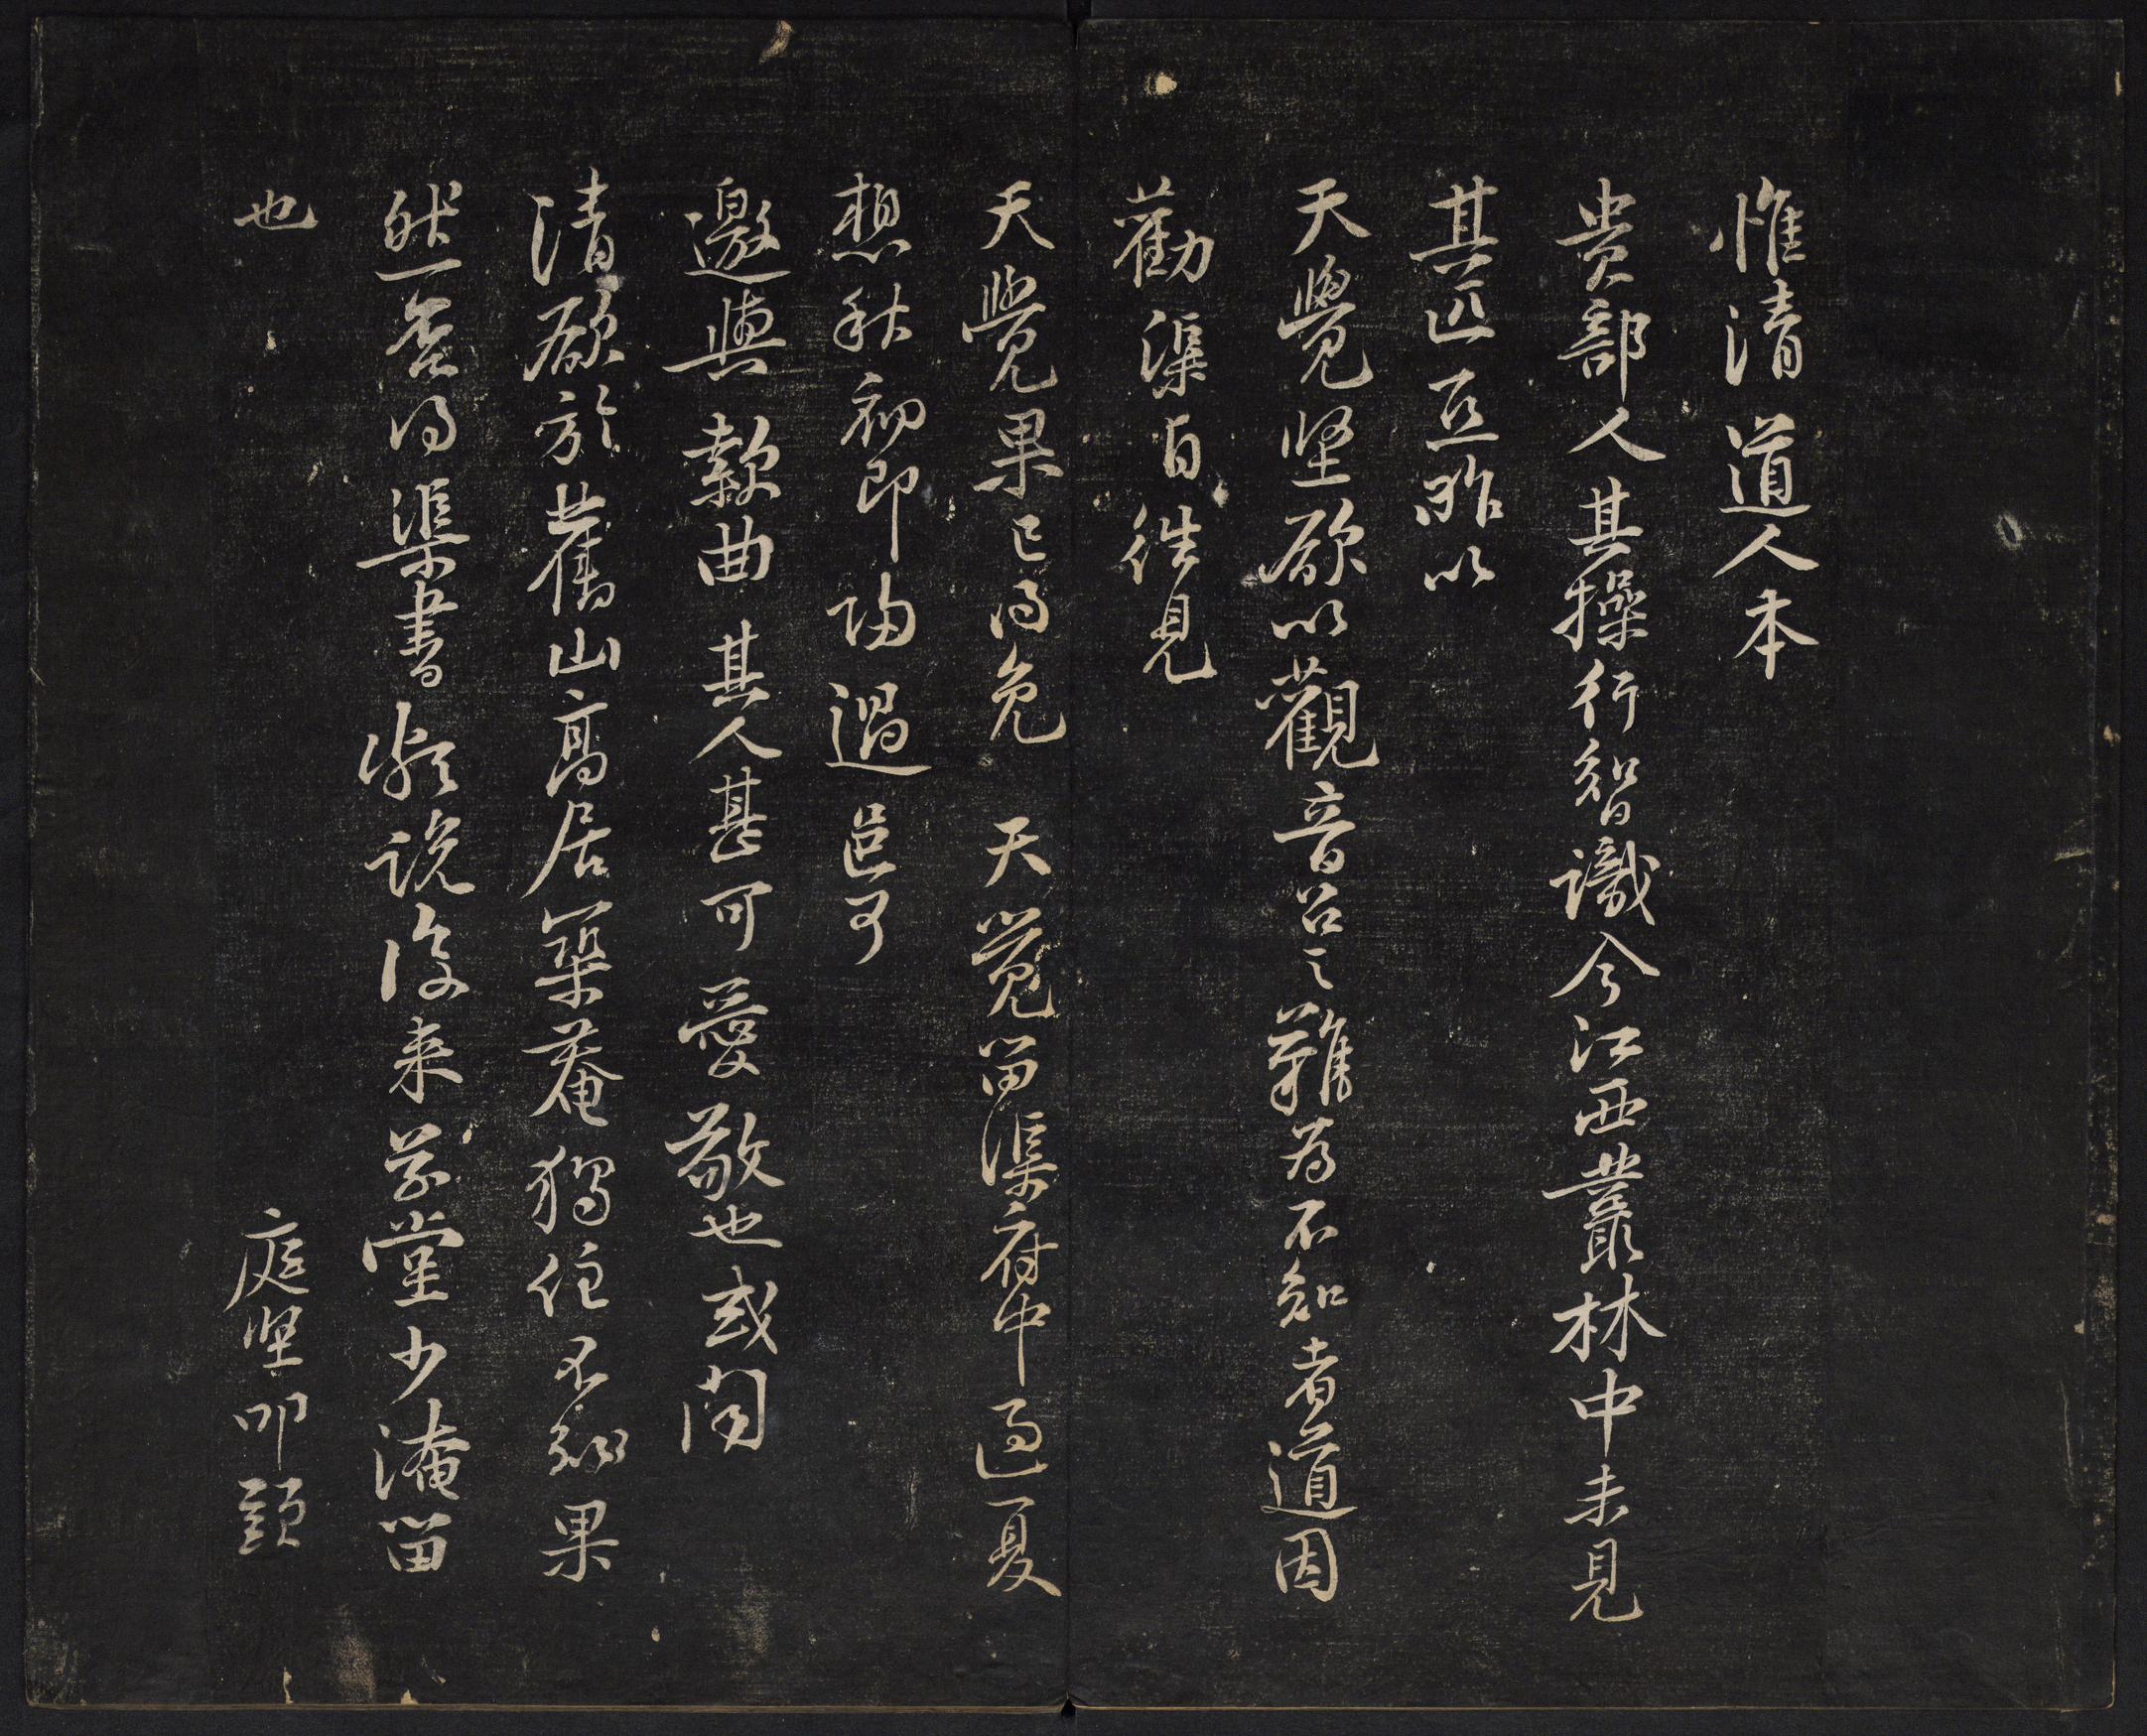 惟清道人本
貴部人其操行智識今江西叢林中未見
其匹亞昨以
天覺堅欲以觀音召之難為不知者道因
勸渠自往見
天覺果已得免 天覺留渠府中過夏
想秋初即歸過邑可
邀與款曲其人甚可愛敬也或聞
清欲於舊山高居築菴獨住不知果
然否得渠書說後來草堂少淹留
也 庭堅叩頭